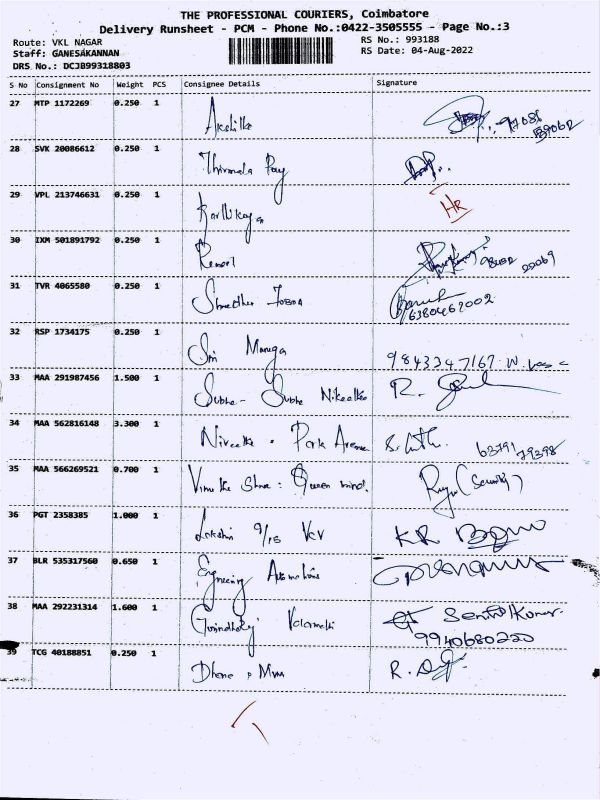 THE PROFESSIONAL COURIERS, Coimbatore
Delivery Runsheet - PCM - Phone No.:0422-3505555 - Page No.:3
Route: VKL NAGAR RS No.: 993188
Staff: GANESAKANNAN RS Date: 04-Aug-2022
DRS No.: DCJB99318803
S No Consignment No Weight PCS Consignee Details Signature
27 MTP 1172269 0.250 1 Akshitha
28 SVK 20086612 0.250 1 Thirmala
29 VPL 213746631 0.250 1 Karthikaya HR
30 IXM 501891792 0.250 1
31 TVR 4065580 0.250 1 6380462002
32 RSP 1734175 0.250 1 Sri Muruga 9843347167
33 MAA 291987456 1.500 1 Subha - Subha R.
34 MAA 562816148 3.300 1 Nivetha . Park Avenue 63791 79398
35 MAA 566269521 0.700 1 Queen mind. (Security)
36 PGT 2358385 1.000 1 9/15 VCV KR
37 BLR 535317560 0.650 1 Engineering Automations
38 MAA 292231314 1.600 1 Senthil Kumar
9940680220
39 TCG 40188851 0.250 1 R.